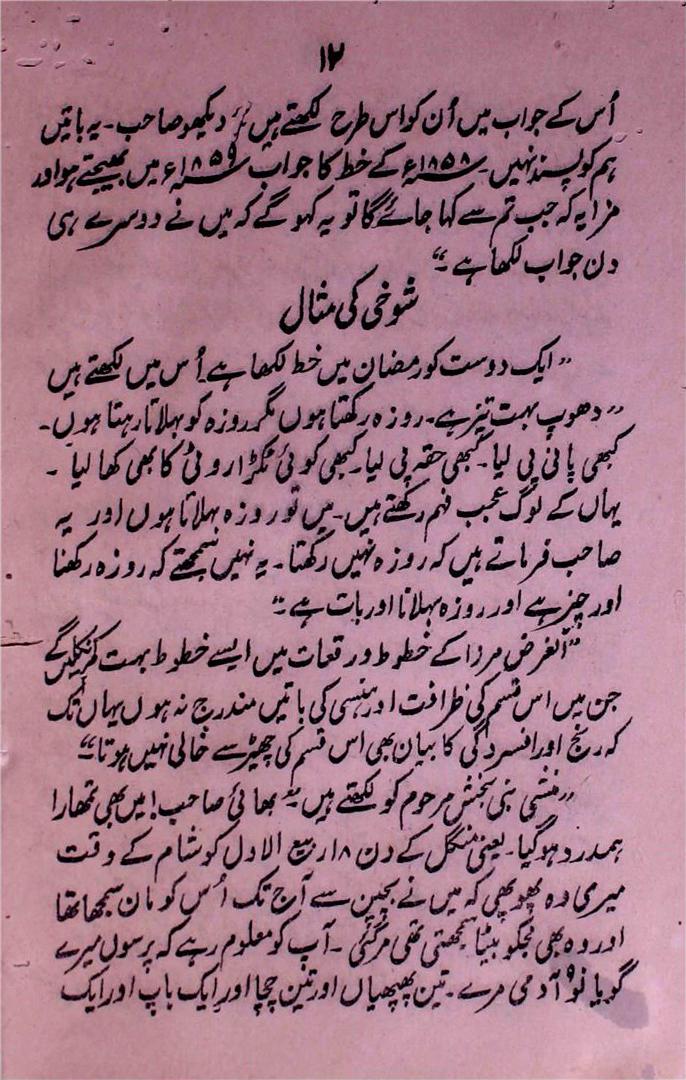 ۱۲
اُس کے جواب میں اُن کو اس طرح لکھتے ہیں ؛ دیکھو صاحب ۔ یہ باتیں
ہم کو پسند نہیں ۔ ۱۸۵۸ء کے خط کا جواب ۱۸۵۹ء میں بھیجتے ہو اور
مزا یہ کہ جب تم سے کہا جائے گا تو یہ کہو گے کہ میں نے دوسرے ہی
دن جواب لکھا ہے ۔“
شوخی کی مثال
”ایک دوست کو رمضان میں خط لکھا ہے اُس میں لکھتے ہیں
”دھوپ بہت تیز ہے ۔ روزہ رکھتا ہوں مگر روزہ کو بہلاتا رہتا ہوں ۔
کبھی پانی پی لیا ۔ کبھی حقہ پی لیا ۔ کبھی کوئی ٹکڑا روٹی کا بھی کھا لیا ۔
یہاں کے لوگ عجب فہم رکھتے ہیں ۔ میں تو روزہ بہلاتا ہوں اور یہ
صاحب فرماتے ہیں کہ روزہ نہیں رکھتا ۔ یہ نہیں سمجھتے کہ روزہ رکھنا
اور چیز ہے اور روزہ بہلانا اور بات ہے ۔“
”الغرض مرزا کے خطوط و رقعات میں ایسے خطوط بہت کم نکلیں گے
جن میں اس قسم کی ظرافت اور ہنسی کی باتیں مندرج نہ ہوں یہاں تک
کہ رنج اور افسردگی کا بیان بھی اس قسم کی چھیڑ سے خالی نہیں ہوتا ۔“
”منشی نبی بخش مرحوم کو لکھتے ہیں ۔ بھائی صاحب ! میں بھی تمھارا
ہمدرد ہو گیا ۔ یعنی منگل کے دن ۱۸ ربیع الاول کو شام کے وقت
میری وہ پھوپھی کہ میں نے بچپن سے آج تک اُس کو ماں سمجھا تھا
اور وہ بھی مجکو بیٹا سمجھتی تھی مر گئی ۔ آپ کو معلوم رہے کہ پرسوں میرے
گویا نو ۹ آدمی مرے ۔ تین پھپھیاں اور تین چچا اور ایک باپ اور ایک